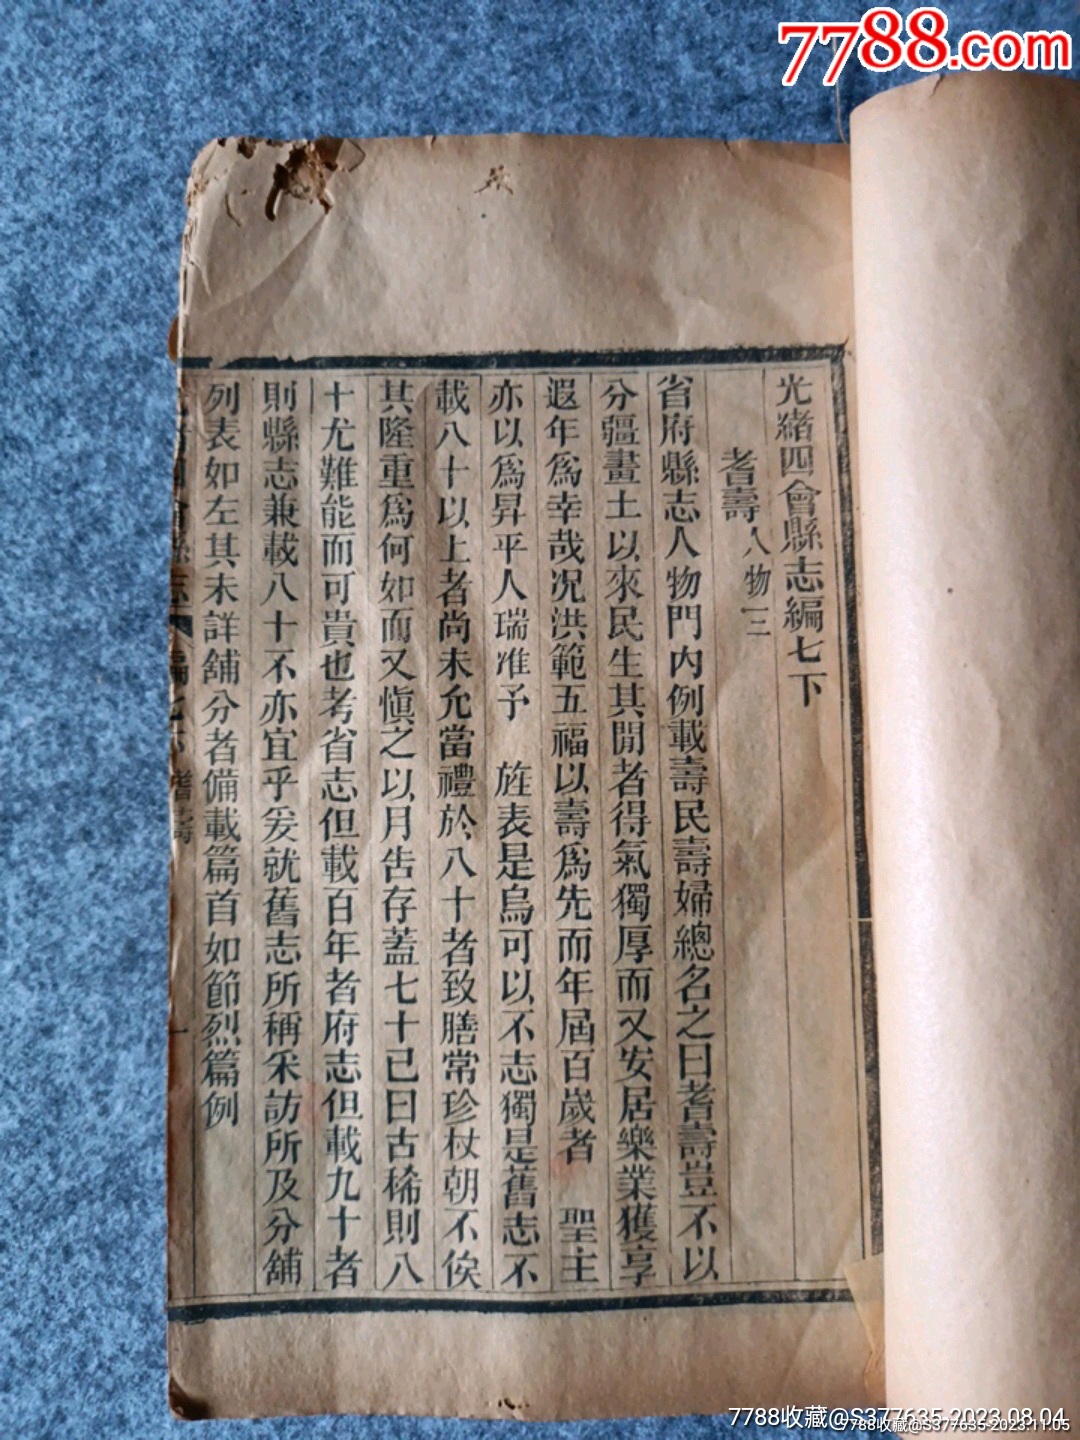 7788.com
光緒四會縣志編七下
耆壽 人物三
省府縣志人物門內例載壽民壽婦總名之曰耆壽豈不以
分疆畫土以來民生其閒者得氣獨厚而又安居樂業獲享
遐年爲幸哉况洪範五福以壽爲先而年屆百歲者 聖主
亦以爲昇平人瑞准予 旌表是烏可以不志獨是舊志不
載八十以上者尚未允當禮於八十者致膳常珍杖朝不俟
其隆重爲何如而又慎之以月告存蓋七十已曰古稀則八
十尤難能而可貴也考省志但載百年者府志但載九十者
則縣志兼載八十不亦宜乎爰就舊志所稱采訪所及分舖
列表如左其未詳舖分者備載篇首如節烈篇例
7788收藏@S377635-2023.08.04
7788收藏@S377635-2023.11.05